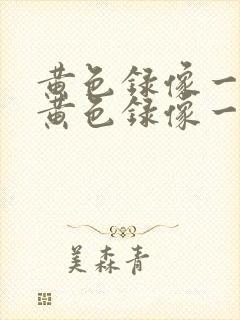 黄色録像一
黄色録像一
美森青